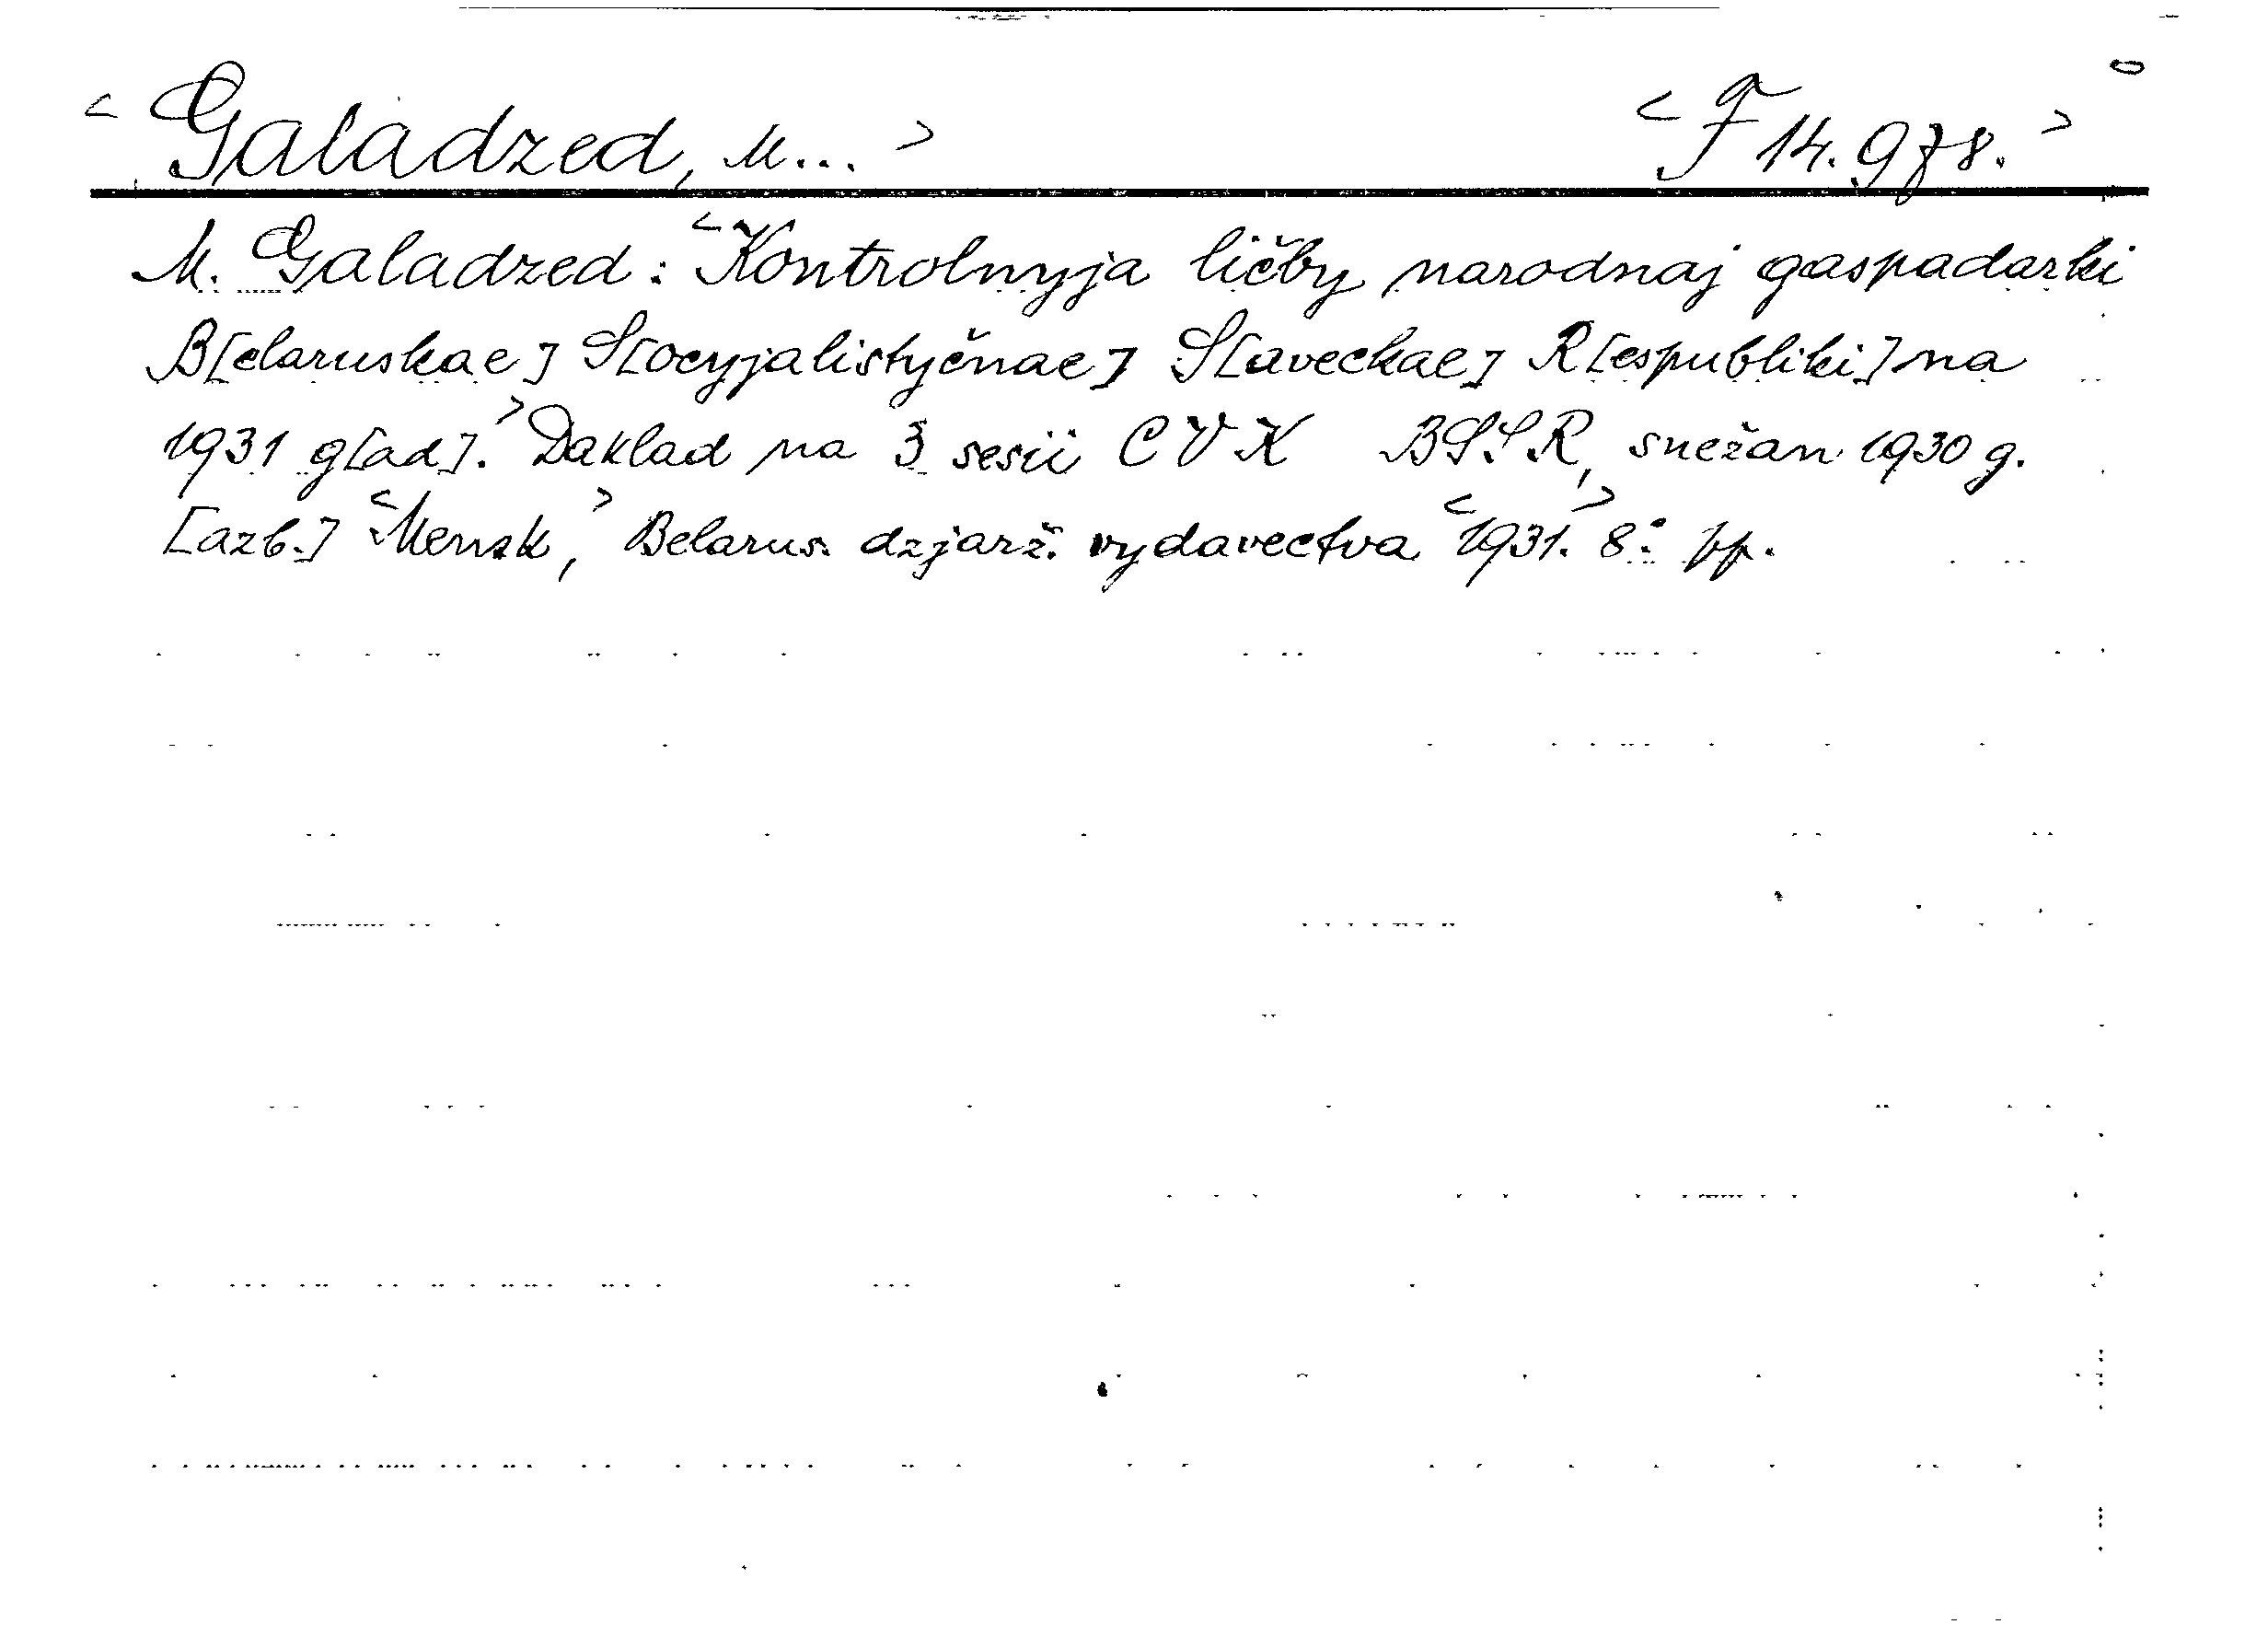 < Galadzed, M... > < F 14.978. >
M. Galadzed: <Kontrolnyja ličby narodnaj gaspadarki
B[elaruskae] S[ocyjalistyčnae] S[aveckae] R[espubliki] na
1931 g[ad].> Daklad na 3 sesii CVK BSSR, snežan 1930 g.
[azb.] <Mensk,> Belarus. dzjarž. vydavectva <1931.> 8.° pp.